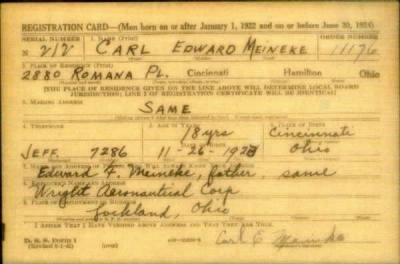 REGISTRATION CARD—(Men born on or after January 1, 1922 and on or before June 30, 1924)
SERIAL NUMBER 1. NAME (Print) ORDER NUMBER
N 212 CARL EDWARD MEINEKE 11176
2. PLACE OF RESIDENCE (Print)
2880 ROMANA PL. Cincinnati Hamilton Ohio
[THE PLACE OF RESIDENCE GIVEN ON THE LINE ABOVE WILL DETERMINE LOCAL BOARD
JURISDICTION; LINE 2 OF REGISTRATION CERTIFICATE WILL BE IDENTICAL]
3. MAILING ADDRESS
SAME
4. TELEPHONE 5. AGE IN YEARS 6. PLACE OF BIRTH
18 yrs Cincinnati
JEFF 7286 11-26-1923 Ohio
7. NAME AND ADDRESS OF PERSON WHO WILL ALWAYS KNOW YOUR ADDRESS
Edward F. Meineke, father, same
8. EMPLOYER'S NAME AND ADDRESS
Wright Aeronautical Corp
Lockland, Ohio
I AFFIRM THAT I HAVE VERIFIED ABOVE ANSWERS AND THAT THEY ARE TRUE.
D. S. S. Form 1
Carl E Meineke